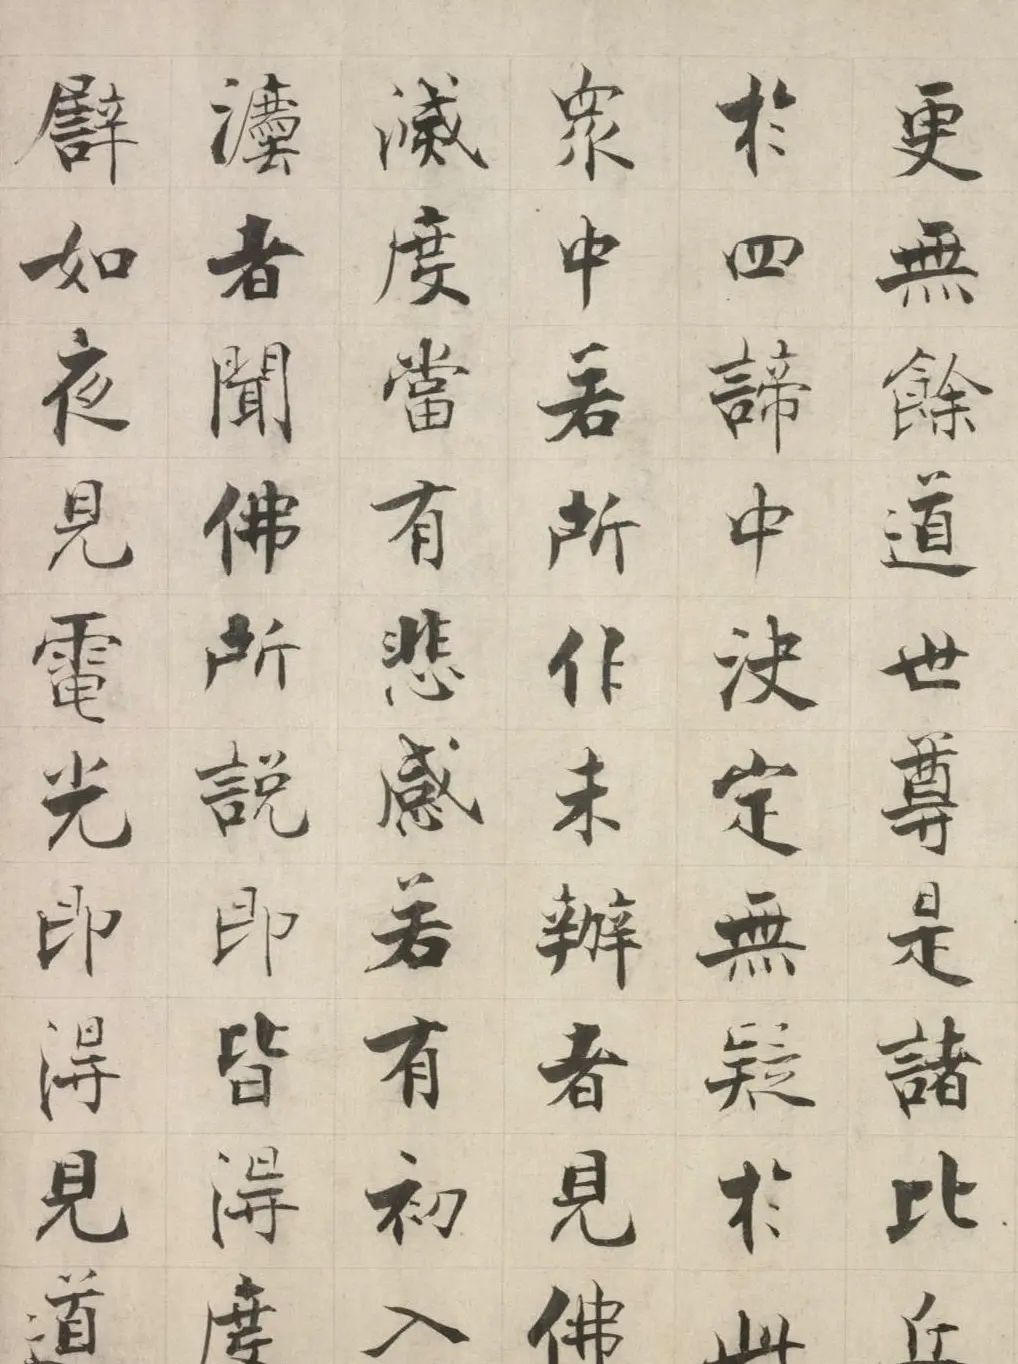 更無餘道世尊是諸比丘
於四諦中決定無疑於此
衆中若所作未辦者見佛
滅度當有悲感若有初入
灋者聞佛所説即皆得度
譬如夜見電光即得見道